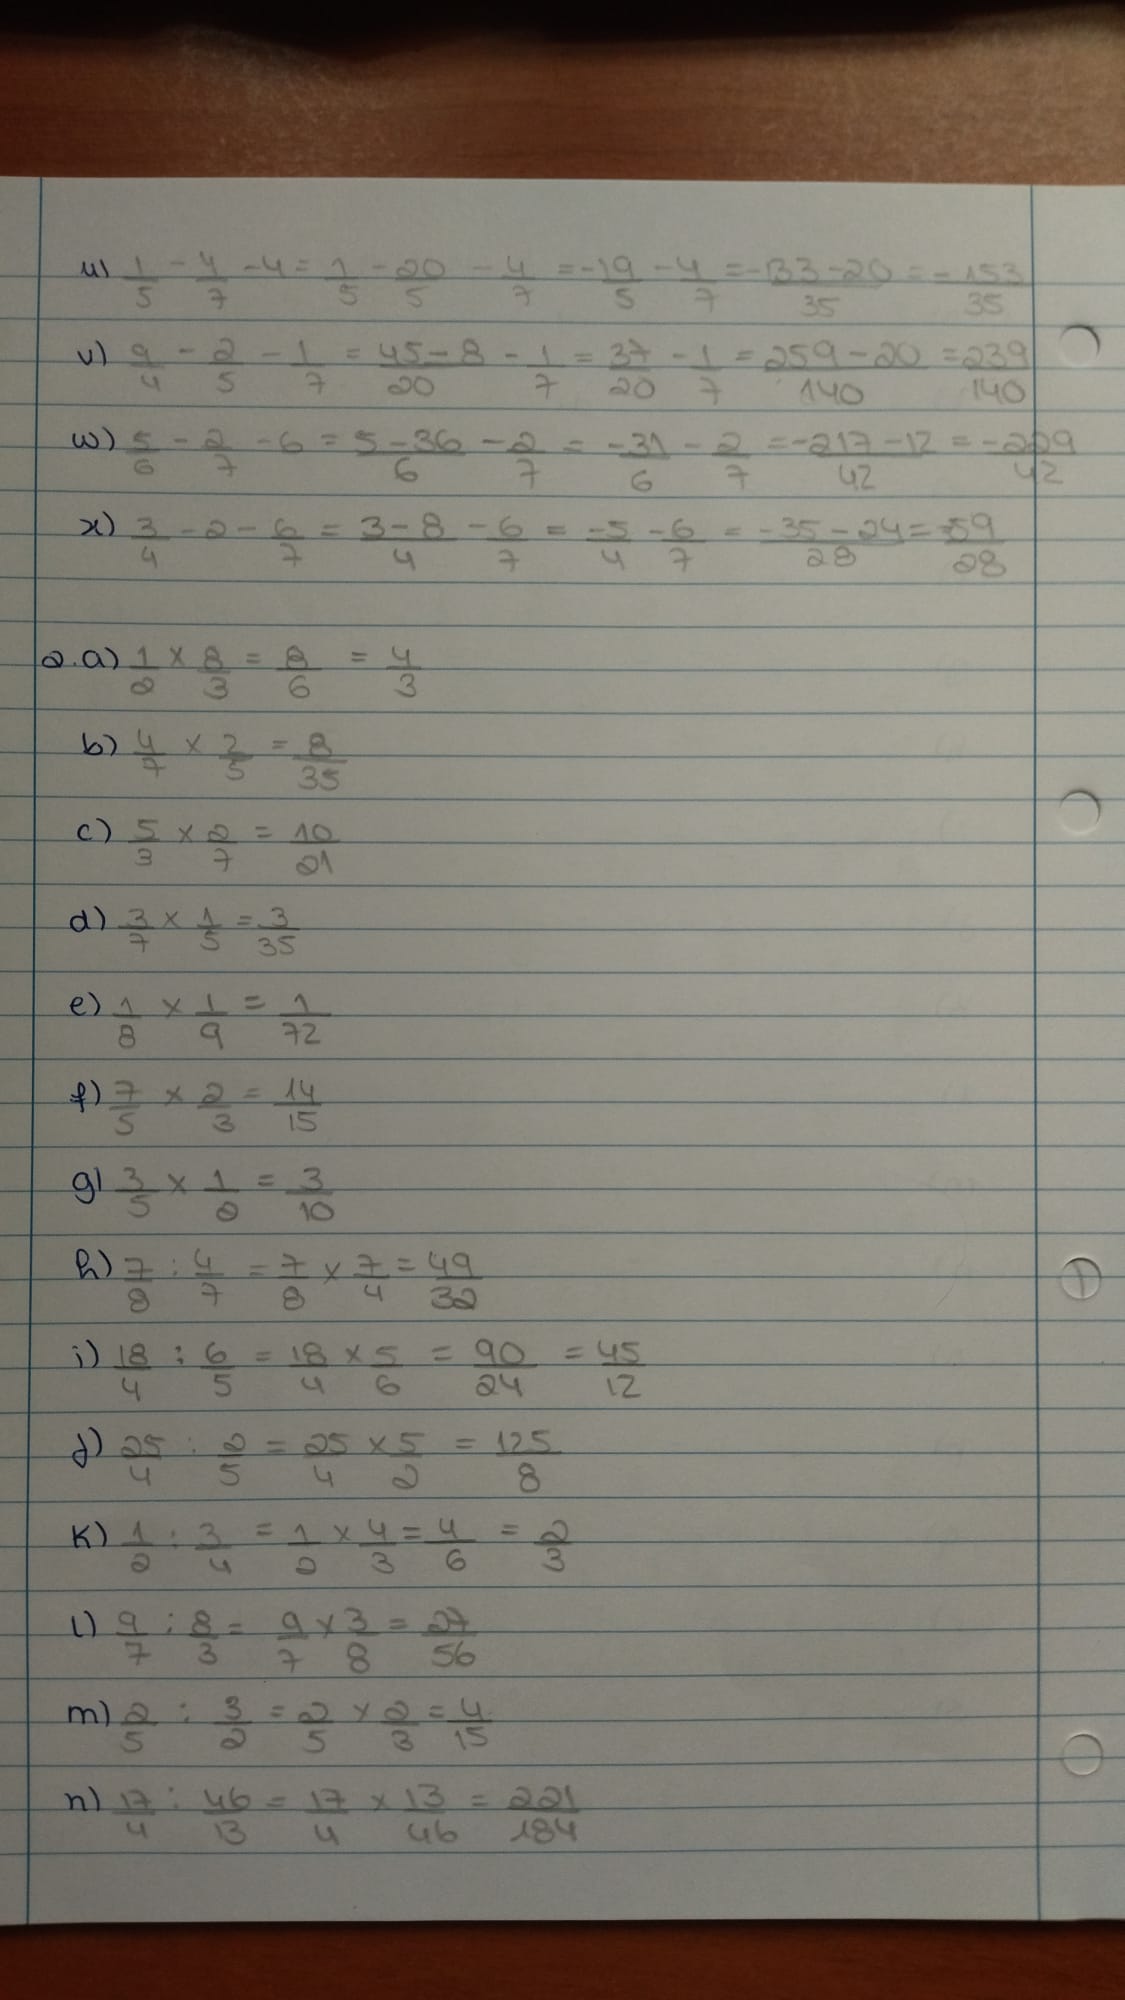 u) 1/5 - 4/7 - 4 = 1/5 - 20/5 - 4/7 = -19/5 - 4/7 = -133-20/35 = -153/35
v) 9/4 - 2/5 - 1/7 = 45-8/20 - 1/7 = 37/20 - 1/7 = 259-20/140 = 239/140
w) 5/6 - 2/7 - 6 = 5-36/6 - 2/7 = -31/6 - 2/7 = -217-12/42 = -229/42
x) 3/4 - 2 - 6/7 = 3-8/4 - 6/7 = -5/4 - 6/7 = -35-24/28 = -59/28
2.a) 1/2 × 8/3 = 8/6 = 4/3
b) 4/7 × 2/5 = 8/35
c) 5/3 × 2/7 = 10/21
d) 3/7 × 1/5 = 3/35
e) 1/8 × 1/9 = 1/72
f) 7/5 × 2/3 = 14/15
g) 3/5 × 1/2 = 3/10
h) 7/8 : 4/7 = 7/8 × 7/4 = 49/32
i) 18/4 : 6/5 = 18/4 × 5/6 = 90/24 = 45/12
j) 25/4 : 2/5 = 25/4 × 5/2 = 125/8
k) 1/2 : 3/4 = 1/2 × 4/3 = 4/6 = 2/3
l) 9/7 : 8/3 = 9/7 × 3/8 = 27/56
m) 2/5 : 3/2 = 2/5 × 2/3 = 4/15
n) 17/4 : 46/13 = 17/4 × 13/46 = 221/184